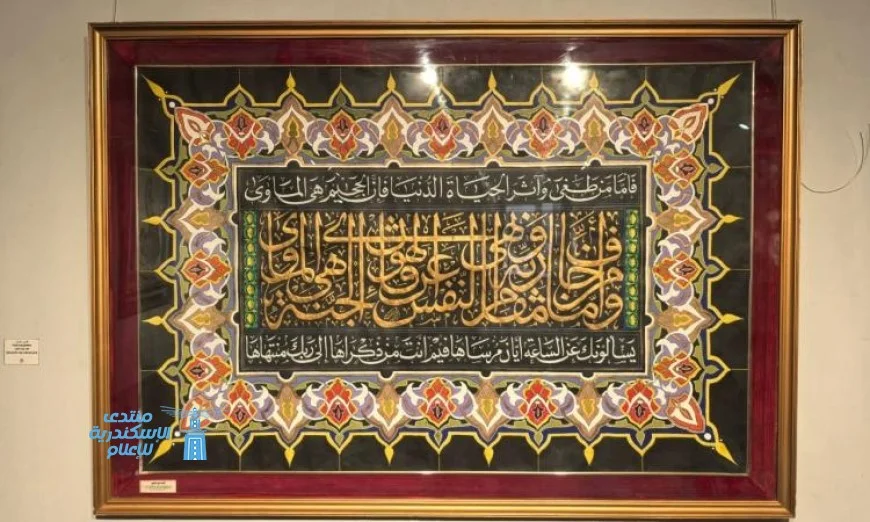 فأما من طغى وآثر الحياة الدنيا فإن الجحيم هي المأوى
وأما من خاف مقام ربه ونهى النفس عن الهوى فإن الجنة هي المأوى
يسألونك عن الساعة أيان مرساها فيم أنت من ذكراها إلى ربك منتهاها
منتدى
الإسكندرية
للإعلام